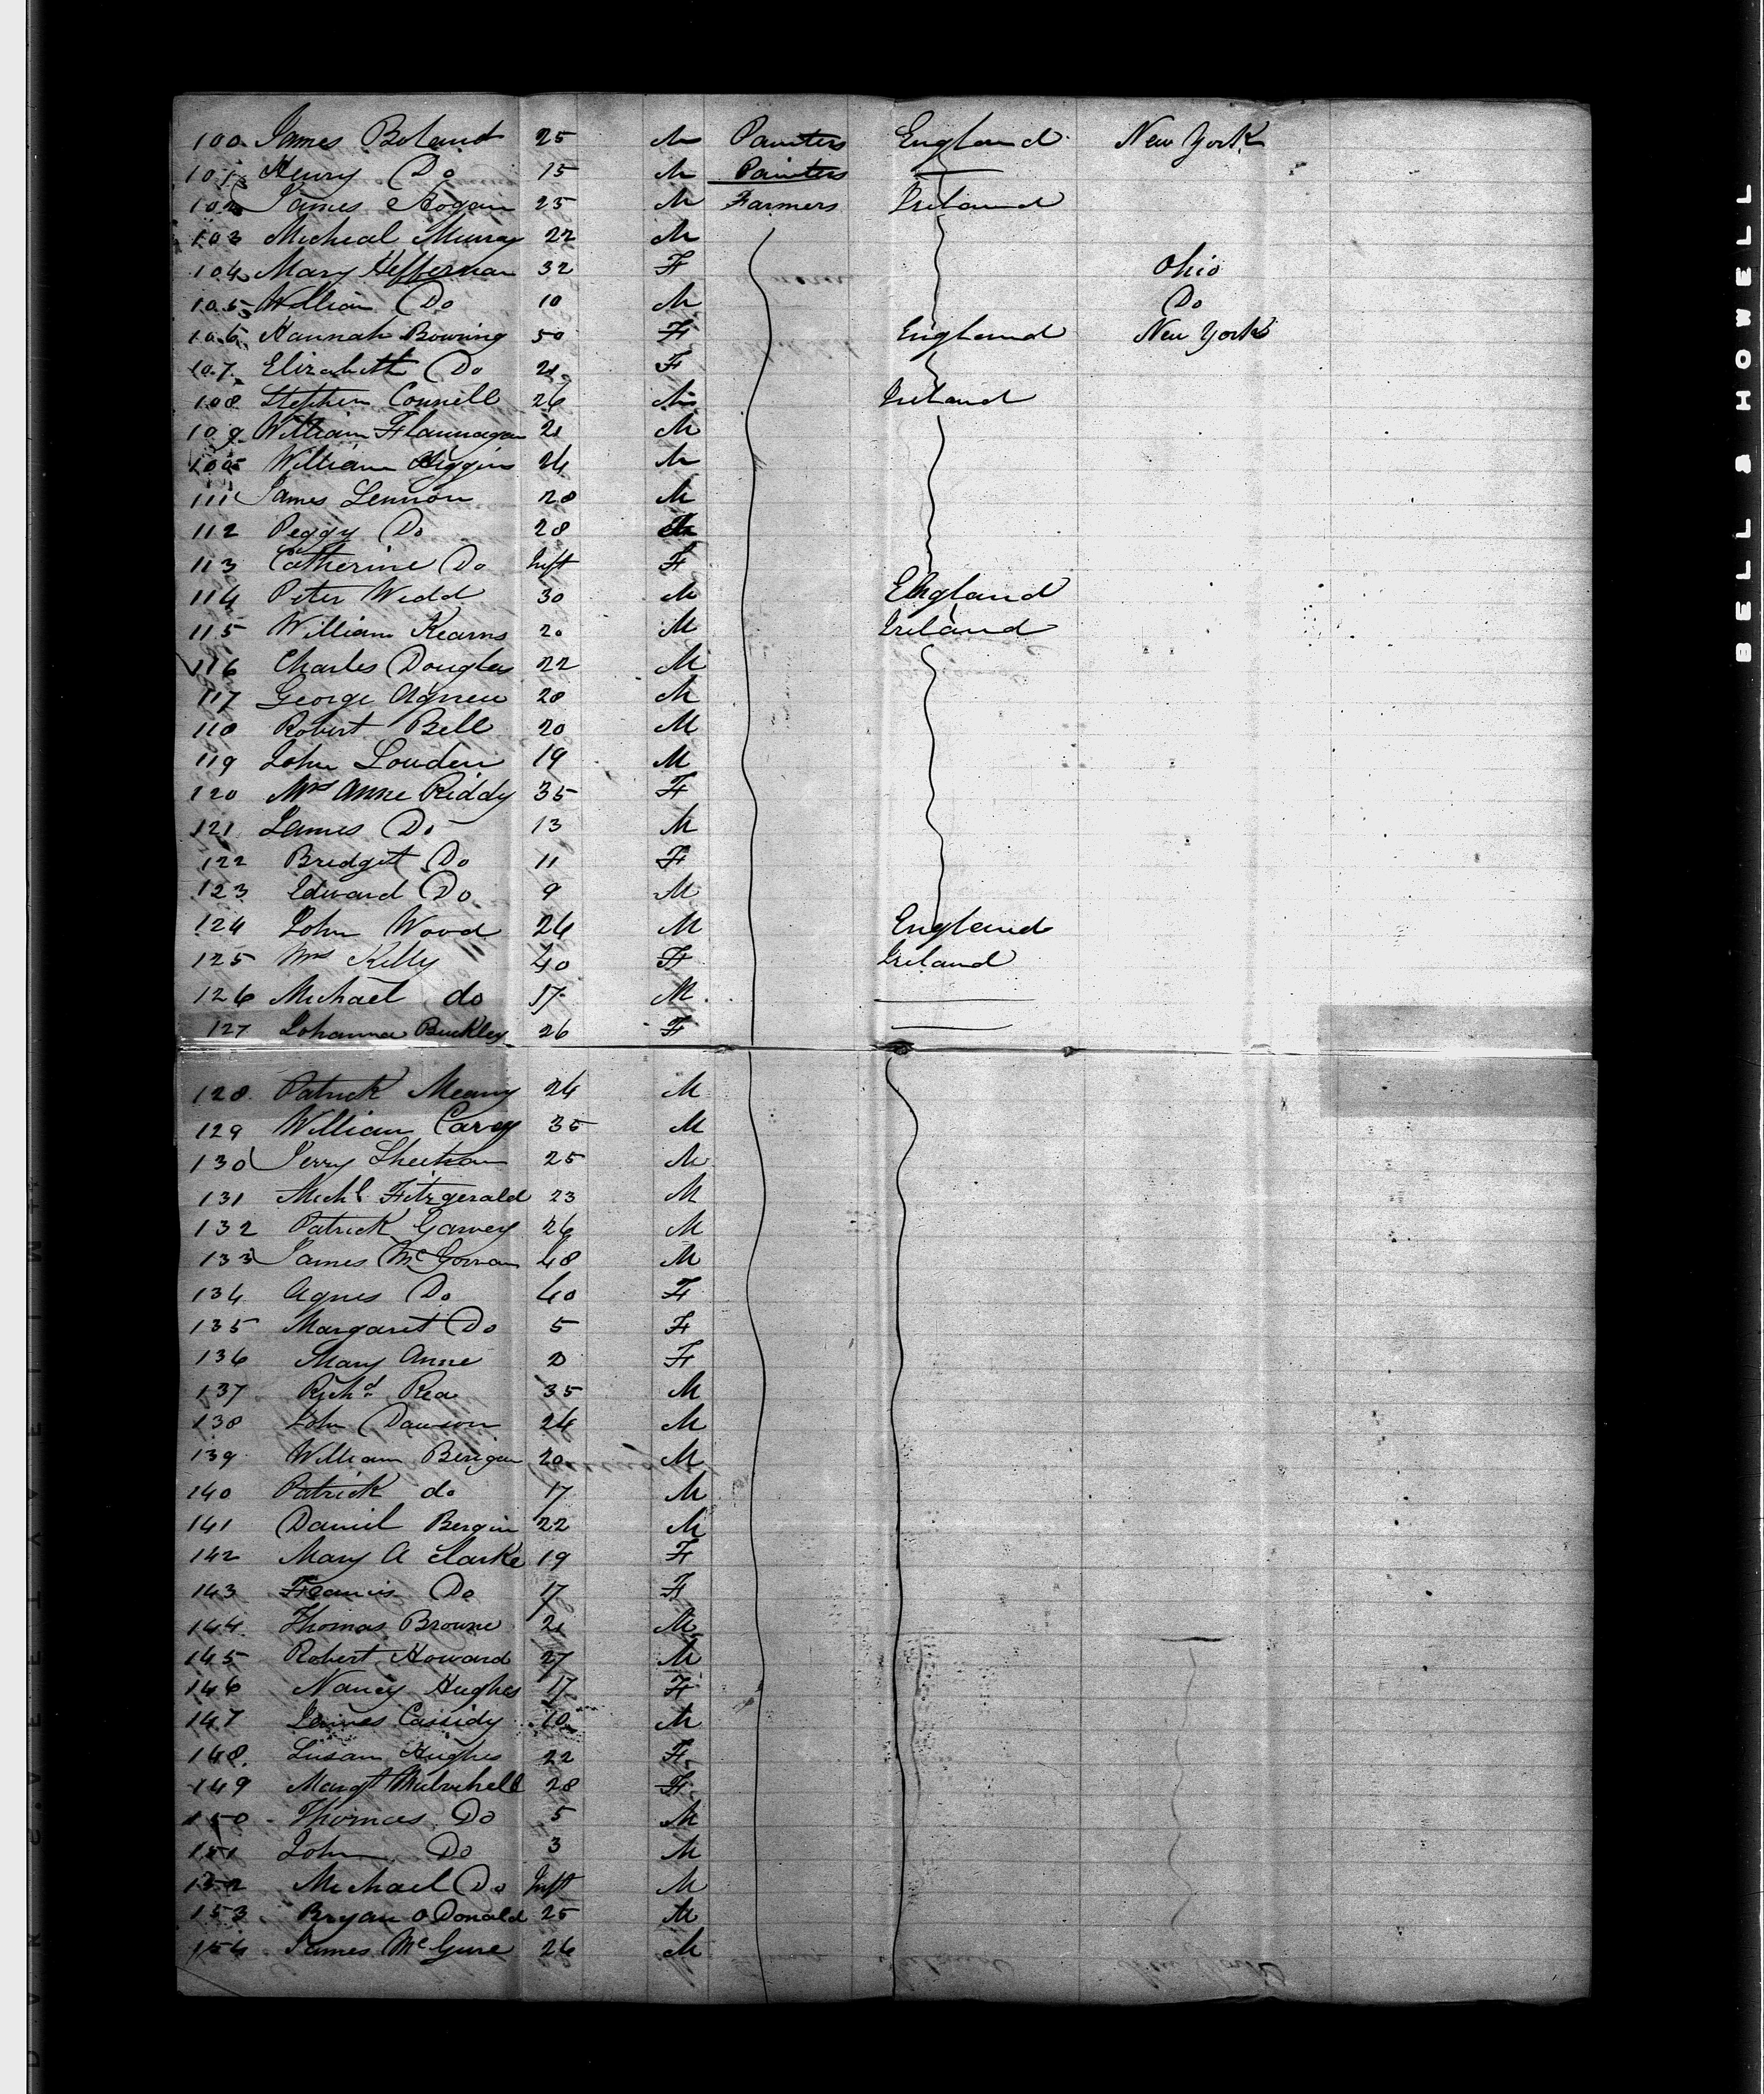 100 James Boland 25 M Painters England New York
101 Henry Do 15 M Painters
102 James Hogan 25 M Farmers Ireland
103 Micheal Murray 22 M
104 Mary Heffernan 32 F Ohio
105 William Do 10 M Do
106 Hannah Bowring 50 F England New York
107 Elizabeth Do 21 F
108 Stephen Connell 26 M Ireland
109 William Flannagan 21 M
William Higgins 24 M
111 James Lennon 28 M
112 Peggy Do 28
113 Catherine Do Inft F
114 Peter Wedd 30 M England
115 William Kearns 20 M Ireland
116 Charles Douglas 22 M
117 George Agnew 28 M
118 Robert Bell 20 M
119 John Louden 19 M
120 Mrs Anne Riddy 35 F
121 James Do 13 M
122 Bridget Do 11 F
123 Edward Do 9 M
124 John Wood 24 M England
125 Mrs Kelly 40 F Ireland
126 Michael do 17 M
127 Johanna Buckley 26 F
128 Patrick Meany 24 M
129 William Carey 35 M
130 Jerry Sheehan 25 M
131 Michl Fitzgerald 23 M
132 Patrick Garvey 26 M
133 James McGowan 48 M
134 Agnes Do 40 F
135 Margaret Do 5 F
136 Mary Anne 2 F
137 Richd Rea 35 M
138 John Dawson 24 M
139 William Berigan 20 M
140 Patrick do 17 M
141 Daniel Bergin 22 M
142 Mary A Clarke 19 F
143 Francis Do 17 F
144 Thomas Browne 21 M
145 Robert Howard 27 M
146 Nancy Hughes 17 F
147 James Cassidy 10 M
148 Susan Hughes 22 F
149 Margt Mulvihell 28 F
150 Thomas Do 5 M
151 John Do 3 M
152 Michael Do Inft M
153 Bryan O Donald 25 M
154 James McGuire 26 M
BELL & HOWELL